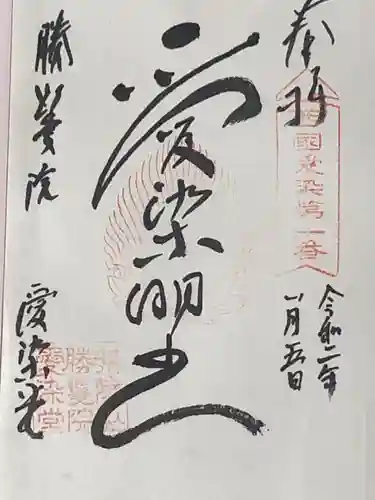 奉拝
西国愛染第一番
令和二年
八月五日
愛染明王
勝鬘院
愛染堂
勝鬘院
愛染堂